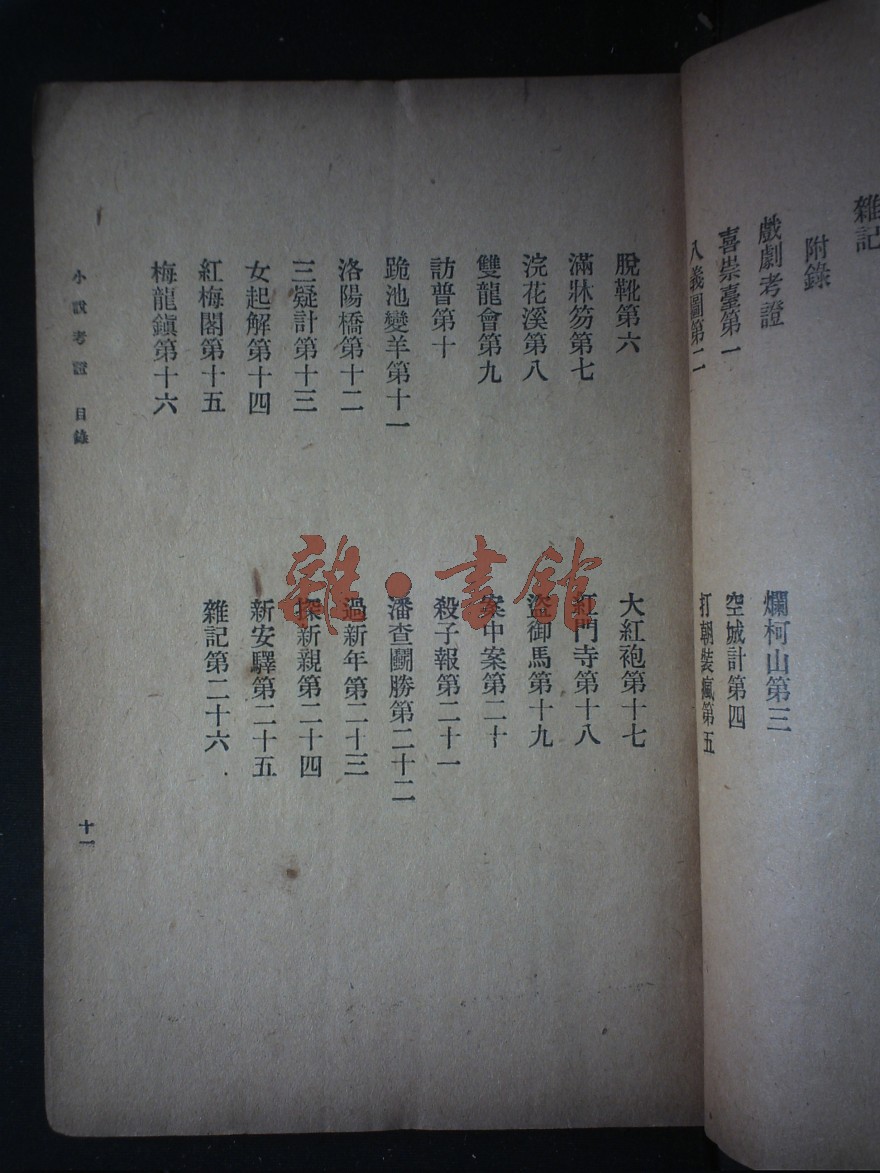 雜記
附錄
戲劇考證
喜崇臺第一
八義圖第二
爛柯山第三
空城計第四
打朝裝瘋第五
脫靴第六
滿牀笏第七
浣花溪第八
雙龍會第九
訪普第十
跪池變羊第十一
洛陽橋第十二
三疑計第十三
女起解第十四
紅梅閣第十五
梅龍鎭第十六
大紅袍第十七
紅門寺第十八
盜御馬第十九
案中案第二十
殺子報第二十一
潘查鬭勝第二十二
過新年第二十三
探新親第二十四
新安驛第二十五
雜記第二十六
小說考證 目錄
十一
雜·書館